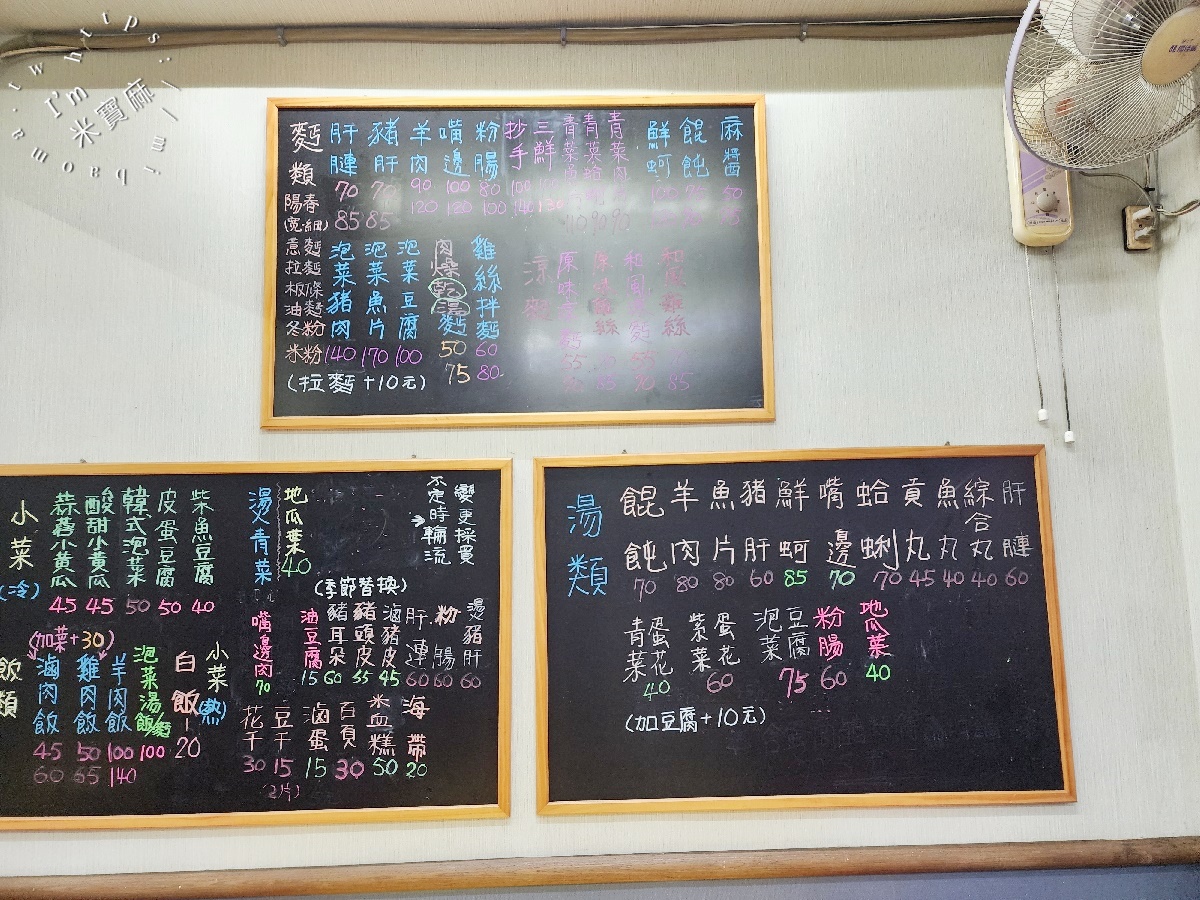 I'm
米寶麻
麵類
陽春
(寬.細)
意麵
拉麵
板條
油麵
冬粉
米粉
肝膶 70 85
豬肝 70 85
羊肉 90 120
嘴邊 100 130
粉腸 80 100
抄手 100 140
三鮮 130
鮮蚵 100
餛飩 70
麻醬 50
泡菜豬肉 140
泡菜魚片 170
泡菜豆腐 100
肉燥乾湯麵 50 75
雞絲拌麵 60 80
涼麵
(拉麵+10元)
小菜(冷)
蒜蓉小黃瓜 45
酸甜小黃瓜 45
韓式泡菜 50
皮蛋豆腐 50
柴魚豆腐 40
燙青菜
地瓜葉 40
不定時輪流
變更採買
(季節替換)
(加菜+30)
飯類
滷肉飯 45 60
雞肉飯 50 65
羊肉飯 100 140
泡菜湯飯/麵 100
白飯-20
小菜(熱)
嘴邊肉 70
油豆腐 15
豬耳朵 60
豬頭皮 55
滷豬皮 45
肝連 60
粉腸 60
燙豬肝 60
花干 30
豆干 15 (2片)
滷蛋 15
百頁 30
米血糕 50
海帶 20
湯類
餛飩 70
羊肉 80
魚片 80
豬肝 60
鮮蚵 85
嘴邊 70
蛤蜊 70
貢丸 45
魚丸 40
綜合丸 40
肝膶 60
青菜蛋花 40
紫菜蛋花 60
泡菜豆腐 75
粉腸 60
地瓜葉 40
(加豆腐+10元)